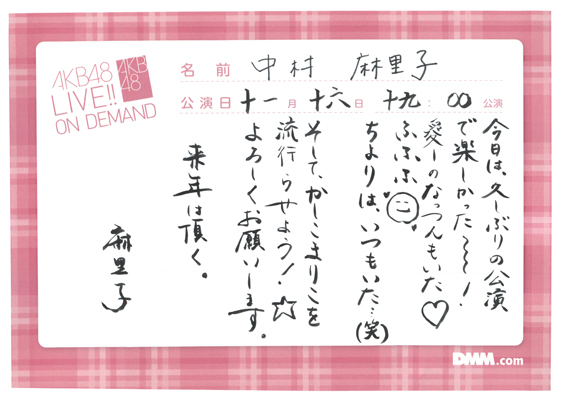 AKB48
LIVE!!
ON DEMAND
AKB
48
名前 中村 麻里子
公演日 十一月 十六日 十九:00 公演
今日は、久しぶりの公演
で楽しかった〜〜!
愛しのなっつんもいた♡
ふふふ
ちよりは、いつもいた…(笑)
そして、かしこまりこを
流行らせよう!☆
よろしくお願いします。
来年は頂く。
麻里子
DMM.com